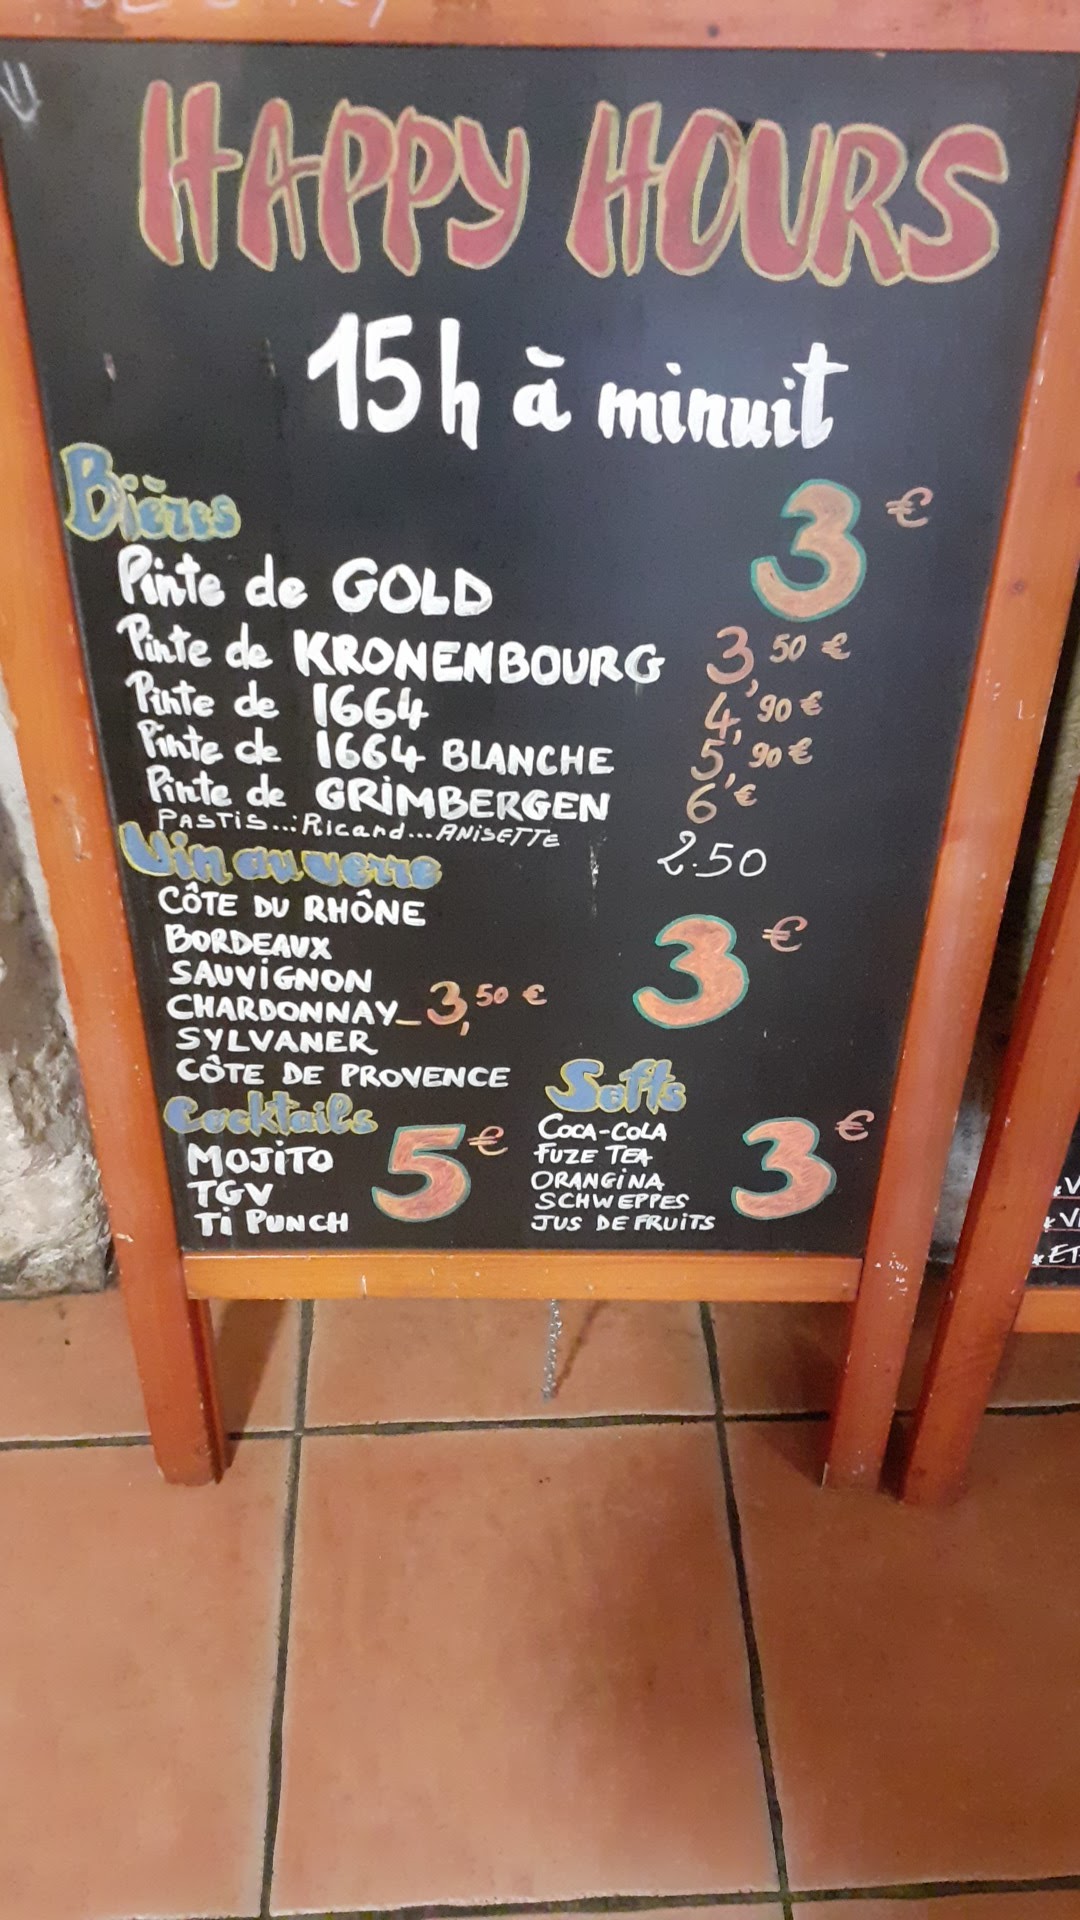 HAPPY HOURS
15h à minuit
Bières
3 €
Pinte de GOLD
Pinte de KRONENBOURG 3,50 €
Pinte de 1664 4,90 €
Pinte de 1664 BLANCHE 5,90 €
Pinte de GRIMBERGEN 6 €
PASTIS...Ricard...ANISETTE 2.50
Vin au verre
CÔTE DU RHÔNE
BORDEAUX
3 €
SAUVIGNON
CHARDONNAY_3,50 €
SYLVANER
CÔTE DE PROVENCE
Cocktails
5 €
MOJITO
TGV
Ti PUNCH
Softs
COCA-COLA
3 €
FUZE TEA
ORANGINA
SCHWEPPES
JUS DE FRUITS